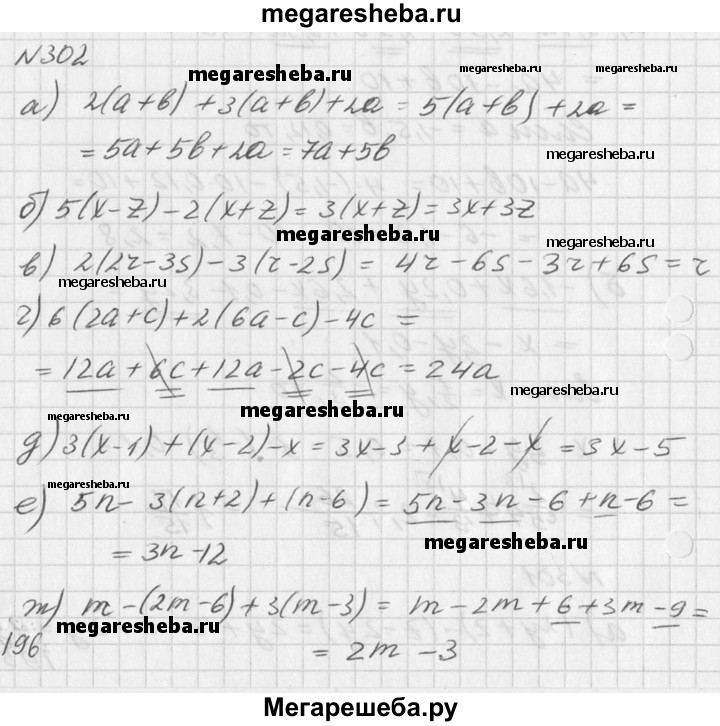 megaresheba.ru
N302
megaresheba.ru megaresheba.ru
а) 2(a+b) + 3(a+b) + 2a = 5(a+b) + 2a =
= 5a + 5b + 2a = 7a + 5b
megaresheba.ru
б) 5(x-z) - 2(x+z) = 3(x+z) = 3x+3z
megaresheba.ru
в) 2(2r-3s) - 3(r-2s) = 4r - 6s - 3r + 6s = r
megaresheba.ru megaresheba.ru
г) 6(2a+c) + 2(6a-c) - 4c =
= 12a + 6c + 12a - 2c - 4c = 24a
megaresheba.ru
megaresheba.ru megaresheba.ru
д) 3(x-1) + (x-2) - x = 3x-3 + x-2-x = 3x-5
megaresheba.ru
е) 5n - 3(n+2) + (n-6) = 5n - 3n - 6 + n - 6 =
= 3n - 12
megaresheba.ru
ж) m - (2m-6) + 3(m-3) = m - 2m + 6 + 3m - 9 =
megaresheba.ru
196
= 2m - 3
Мегарешеба.ру